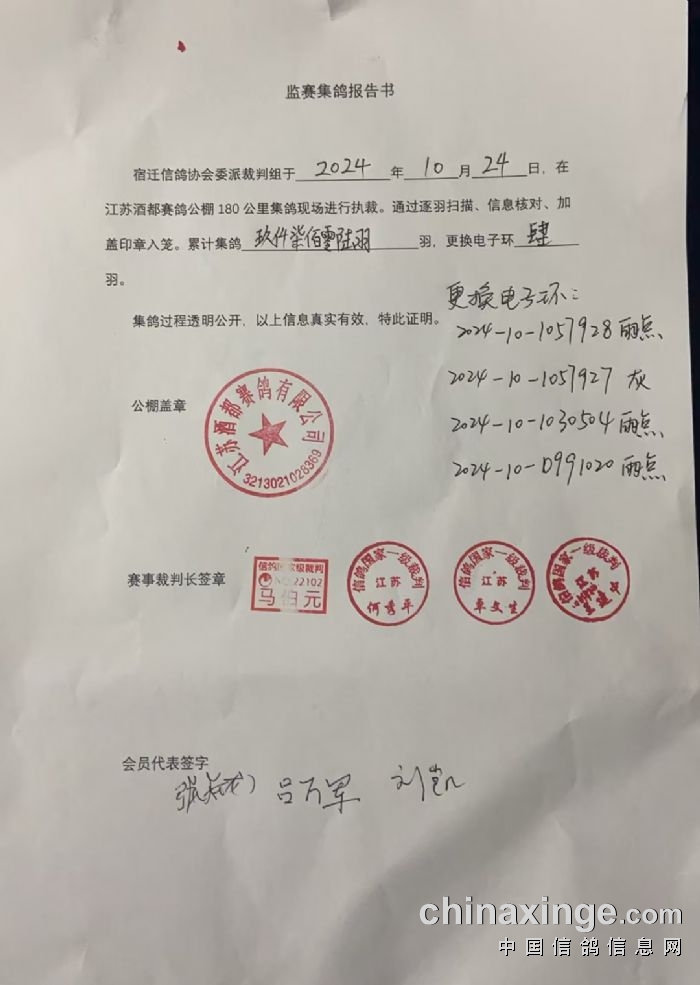 监赛集鸽报告书
宿迁信鸽协会委派裁判组于 2024 年 10 月 24 日，在
江苏酒都赛鸽公棚 180 公里集鸽现场进行执裁。通过逐羽扫描、信息核对、加
盖印章入笼。累计集鸽 玖仟柒佰零陆羽 羽，更换电子环 肆
羽。
集鸽过程透明公开，以上信息真实有效，特此证明。
更换电子环：
2024-10-1057928 雨点
2024-10-1057927 灰
2024-10-1030504 雨点
2024-10-0991020 雨点
公棚盖章
江苏酒都赛鸽有限公司
3213021028369
赛事裁判长签章
信鸽国家级裁判
NO.22102
马伯元
信鸽国家一级裁判
江苏
何秀平
信鸽国家一级裁判
江苏
卓文生
信鸽国家一级裁判
江苏
会员代表签字
张 吕万军 刘凯
chinaxinge.com
中国信鸽信息网